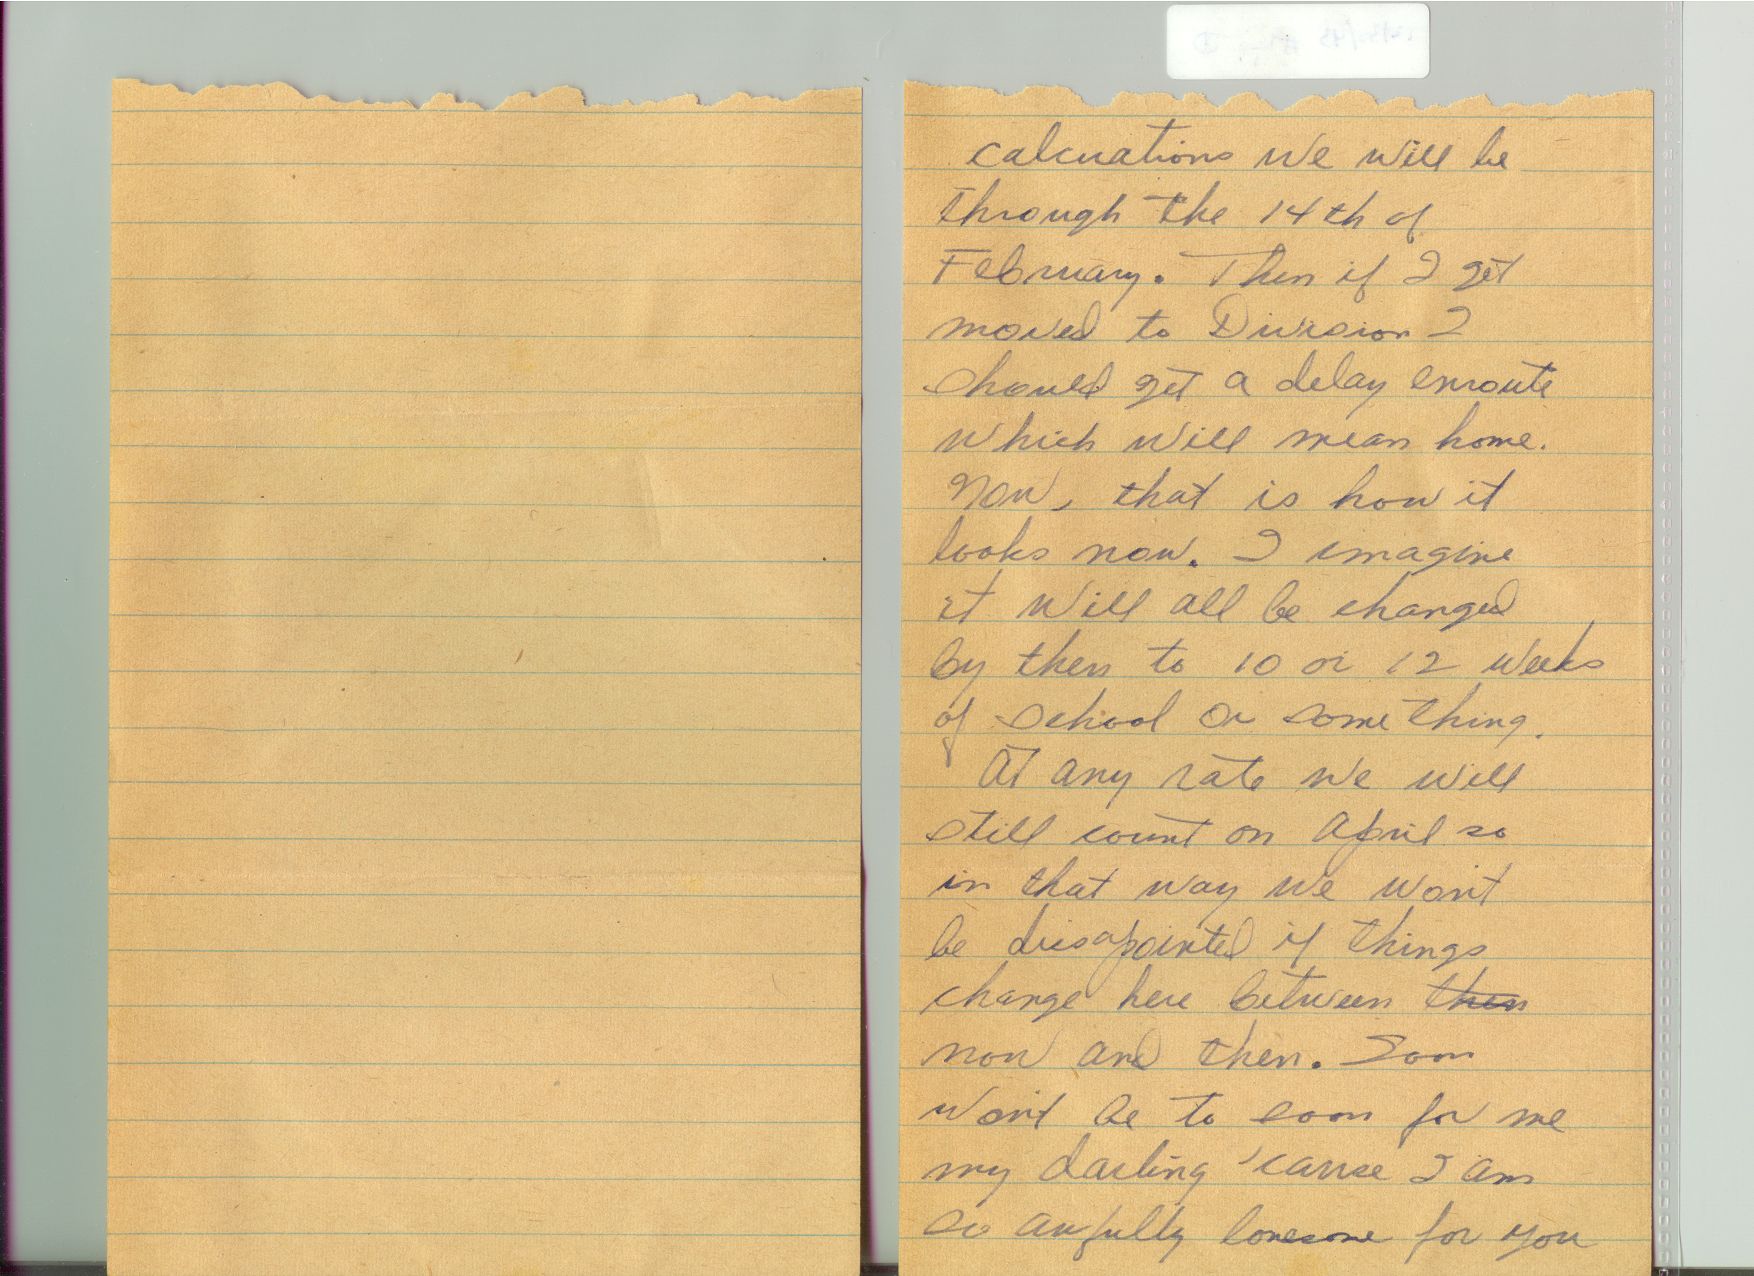 calcuations we will be
through the 14th of
February. Then if I get
moved to Division I
should get a delay enroute
which will mean home.
Now, that is how it
looks now. I imagine
it will all be changed
by then to 10 or 12 weeks
of school or something.
At any rate we will
still count on April so
in that way we won't
be disapointed if things
change here between then
now and then. Soon
won't be to soon for me
my darling 'cause I am
so awfully lonesome for you